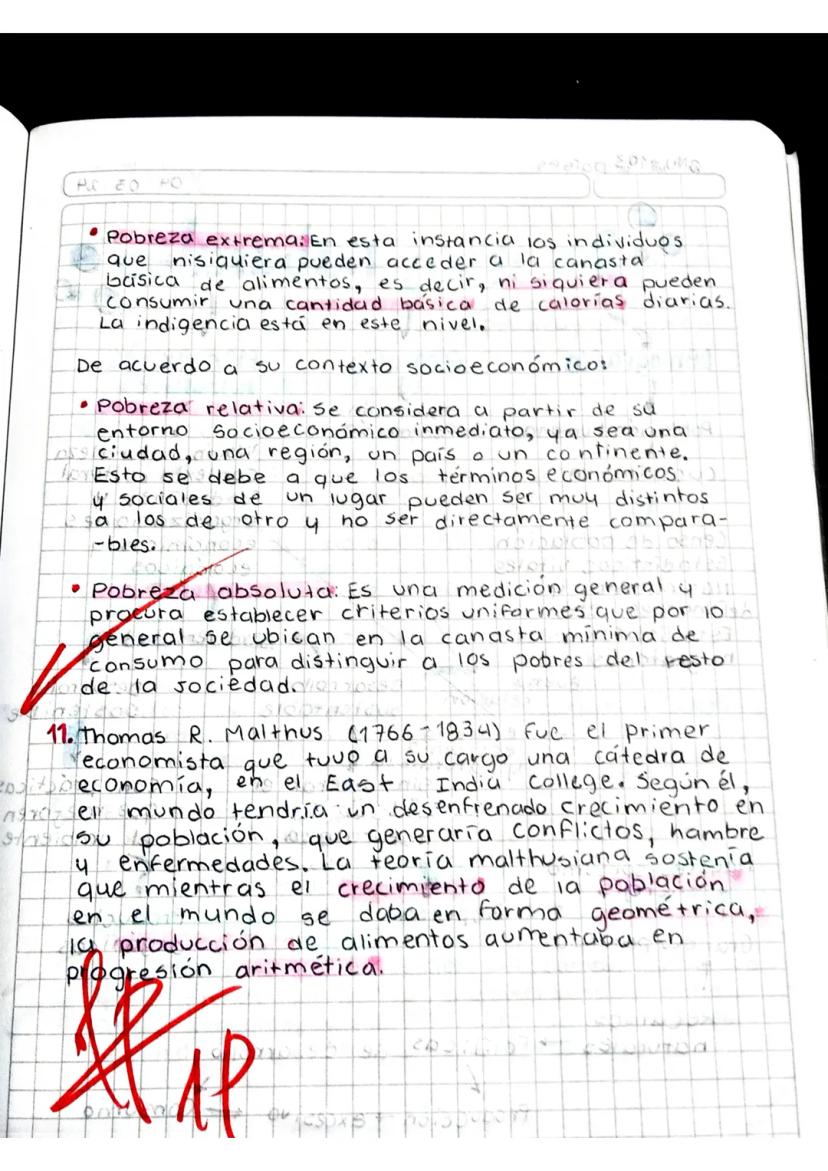 • Pobreza extrema: En esta instancia los individuos
que nisiquiera pueden acceder a la canasta
básica de alimentos, es decir, ni siquiera pueden
consumir una cantidad básica de calorías diarias.
La indigencia está en este nivel.
De acuerdo a su contexto socioeconómico:
• Pobreza relativa: Se considera a partir de su
entorno socioeconómico inmediato, ya sea una
ciudad, una región, un país o un continente.
Esto se debe a que los términos económicos
y sociales de un lugar pueden ser muy distintos
a los de otro y no ser directamente compara-
-bles.
• Pobreza absoluta: Es una medición general y
procura establecer criterios uniformes que por lo
general se ubican en la canasta mínima de
consumo para distinguir a los pobres del resto
de la sociedad.
11. Thomas R. Malthus (1766-1834) Fue el primer
economista que tuvo a su cargo una cátedra de
economía, en el East India College. Según él,
el mundo tendría un desenfrenado crecimiento en
su población, que generaría conflictos, hambre
y enfermedades. La teoría malthusiana sostenía
que mientras el crecimiento de la población
en el mundo se daba en forma geométrica,
la producción de alimentos aumentaba en
progresión aritmética.